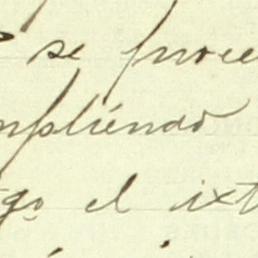 se proce
mpliendo
go el ixt